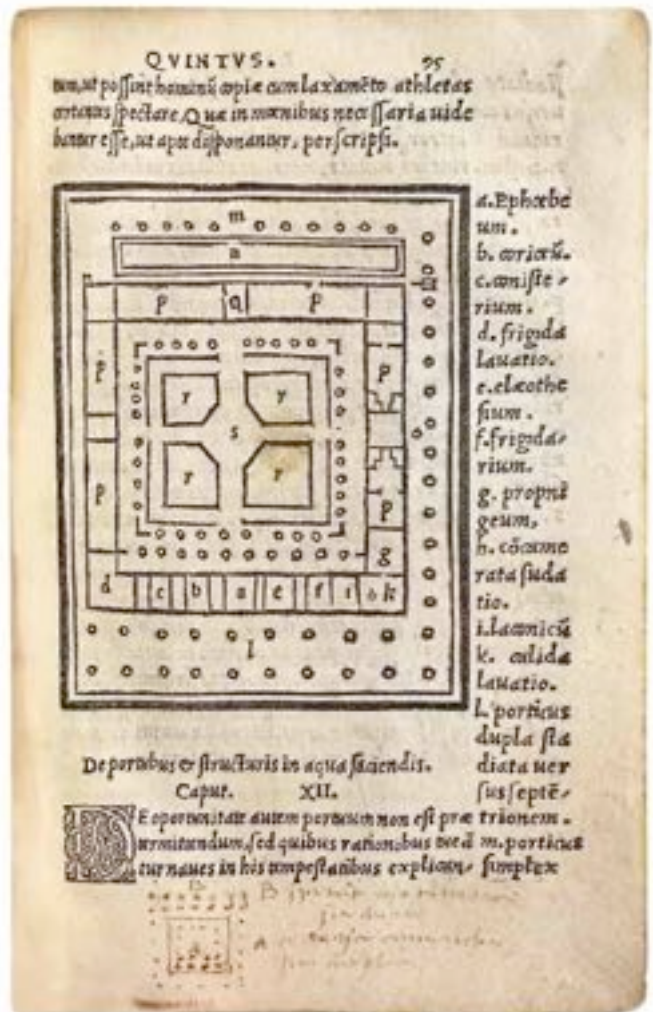 QVINTVS. 95
tum, ut possint hominū copiæ cum laxamēto athletas
certantes spectare. Quæ in mœnibus necessaria uide
bantur esse, ut apte disponantur, perscripsi.
m
n
p q p
p r r p
s
p r r p
g
d c b a e f i h k
l
a. Ephœbe
um.
b. coricũ.
c. coniste-
rium.
d. frigida
lauatio.
e. elæothe
sium.
f. frigida-
rium.
g. propni
geum,
h. cōcame
rata suda
tio.
i. laconicũ
k. calida
lauatio.
l. porticus
dupla sta
diata uer
sus septē-
trionem.
m. porticus
simplex
De portubus & structuris in aqua faciendis.
Caput. XII.
DE oportunitate autem portuum non est præ
termittendum, sed quibus rationibus tueā
tur naues in his tempestatibus explican-
B
B
A
A